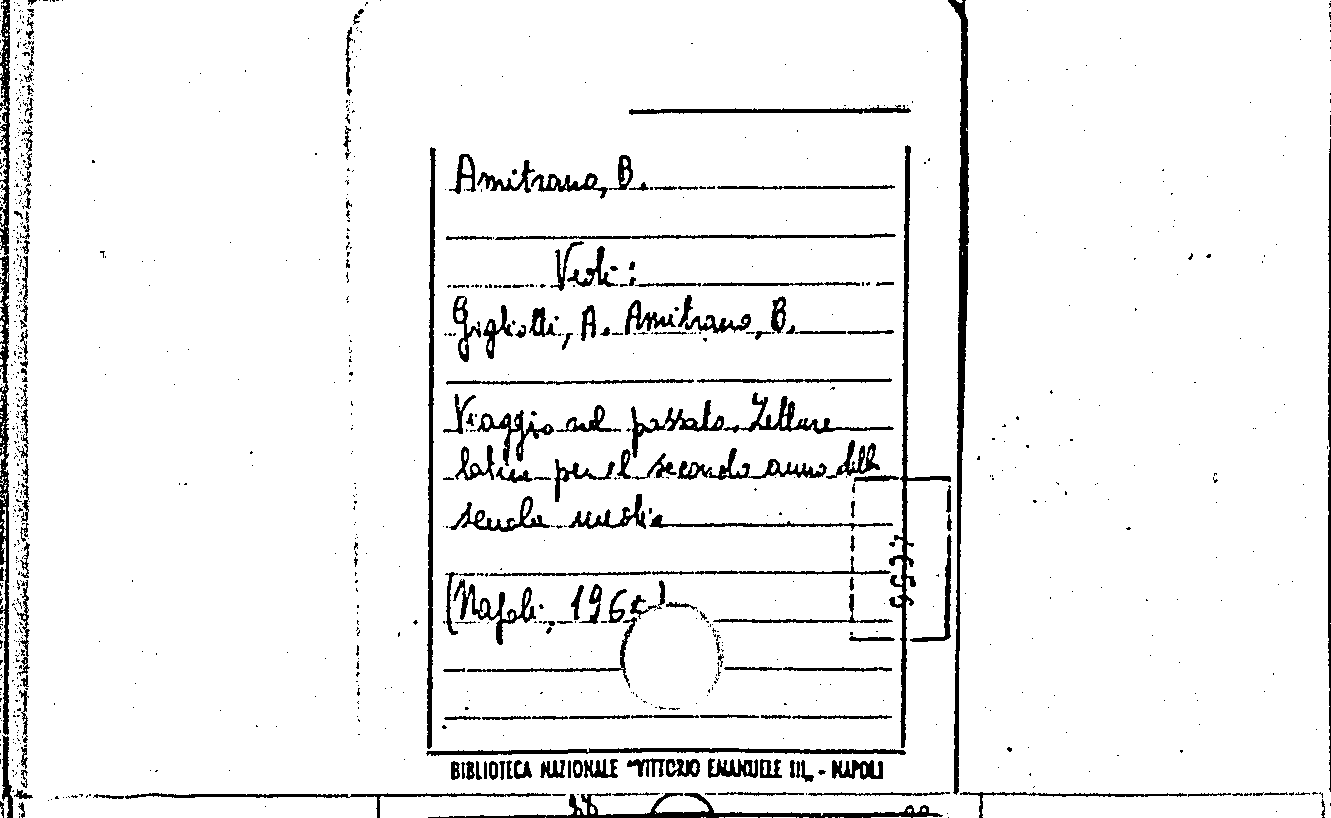 Amitrano, B.
Vedi:
Gigliotti, A. Amitrano, B.
Viaggio nel passato. Letture
latine per il secondo anno della
scuola media
(Napoli, 1965)
BIBLIOTECA NAZIONALE "VITTORIO EMANUELE III„ - NAPOLI